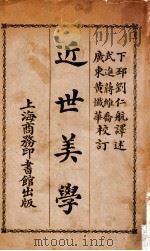 下邳劉仁航譯述
武進蔣維喬校訂
廣東黃懺華
近世美學
上海商務印書館出版